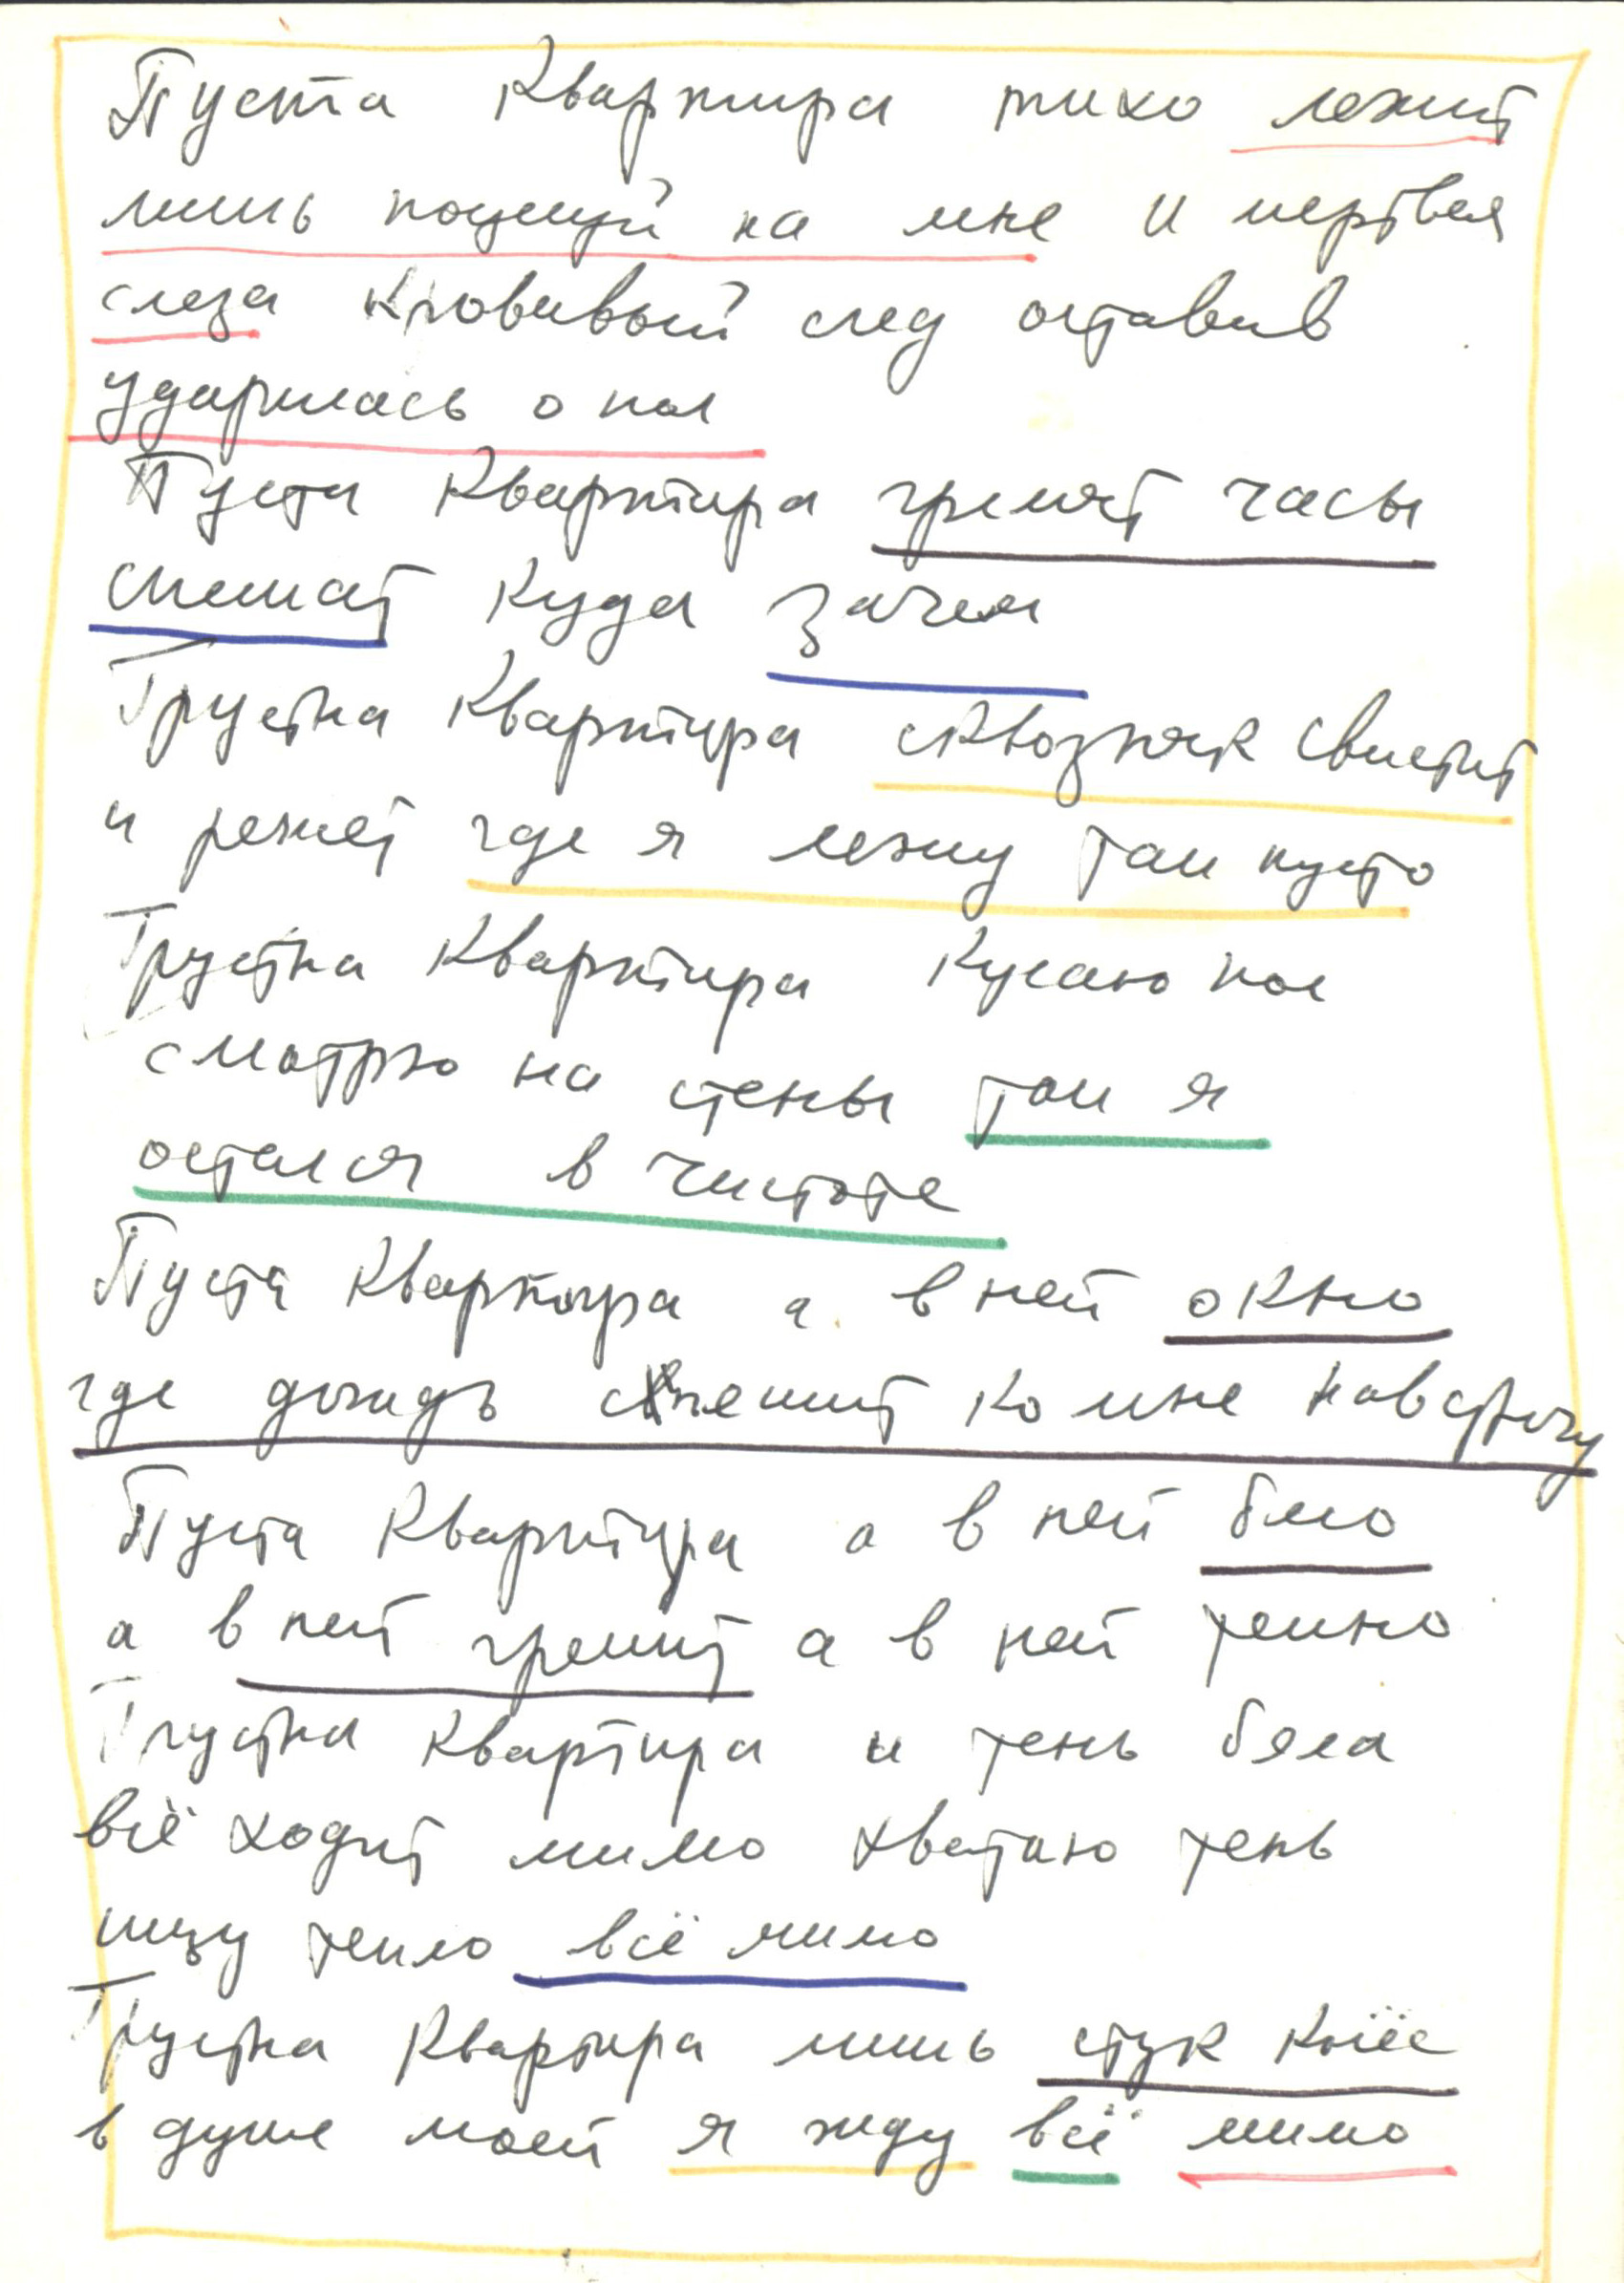 Пуста Квартира тихо лежит
лишь поцелуй на мне и мертвая
слеза кровавый след оставив
ударилась о пол
Пуста Квартира гремят часы
спешат куда зачем
Грустна Квартира сквозняк свистит
и режет где я лежу там пусто
Грустна Квартира Кусаю пол
смотрю на стены там я
остался в чистоте
Пуста Квартира а в ней окно
где дождь спешит ко мне навстречу
Пуста Квартира а в ней
а в ней гремит а в ней темно
Грустна Квартира и тень
всё ходит мимо хватаю тень
ищу тепло всё мимо
Грустна Квартира лишь стук
в душе моей я жду всё мимо